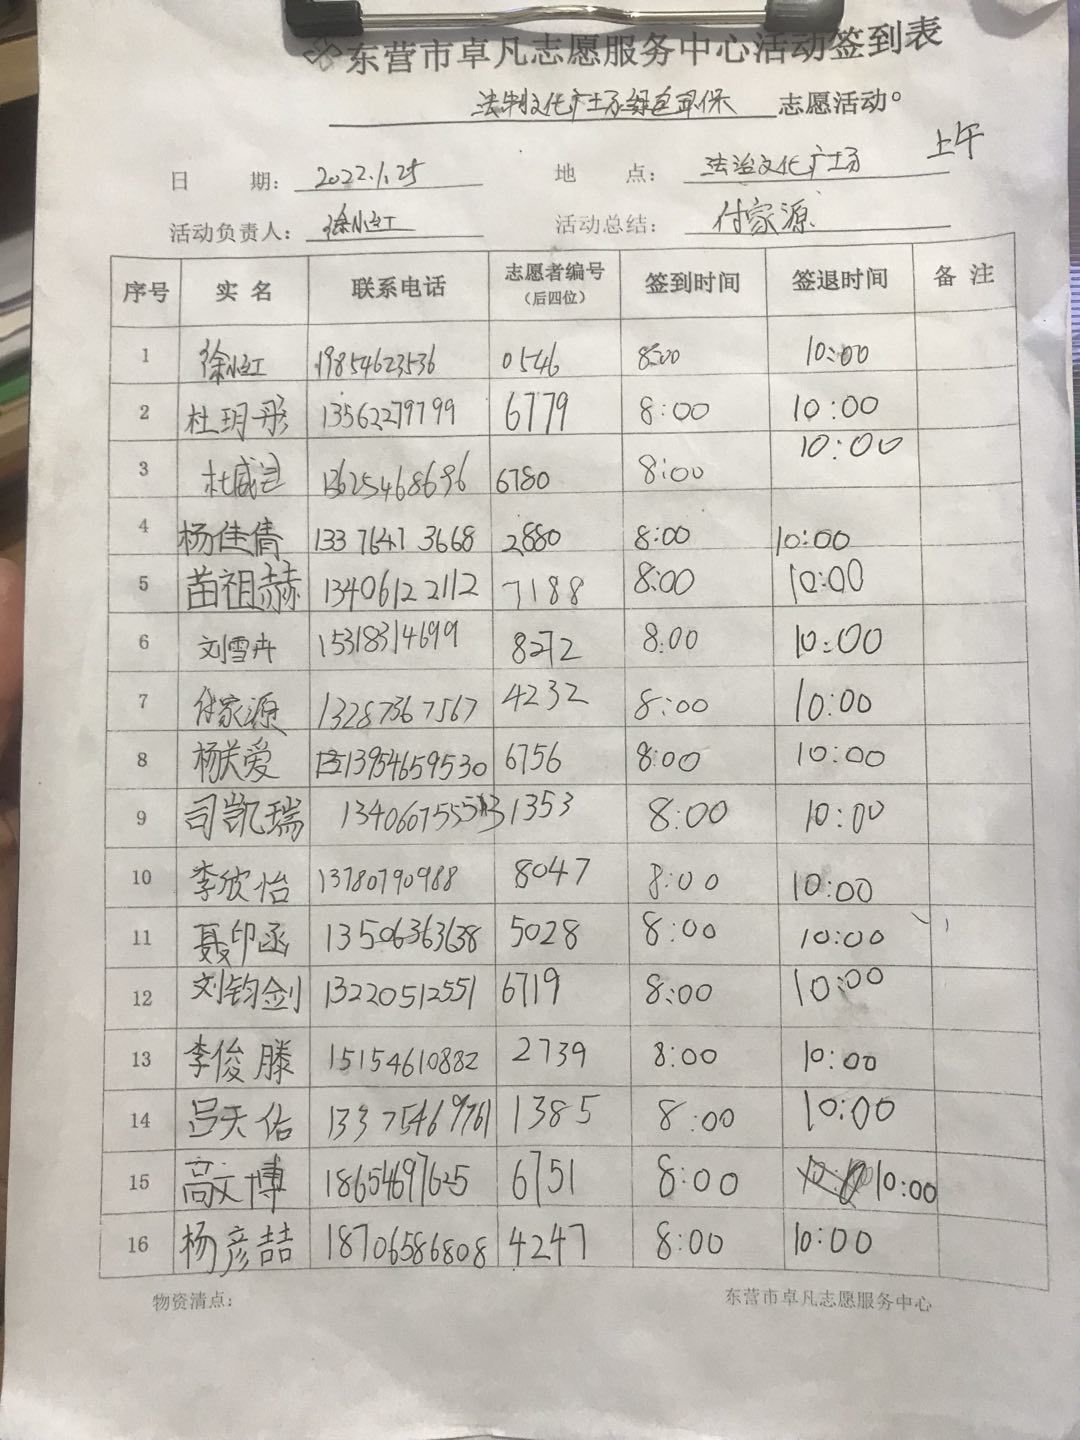 东营市卓凡志愿服务中心活动签到表
法制文化广场绿色环保 志愿活动。
上午
日 期: 2022.1.25 地 点: 法治文化广场
活动负责人: 徐小红 活动总结: 付家源
序号 实名 联系电话 志愿者编号(后四位) 签到时间 签退时间 备注
1 徐小红 19854623536 0546 8:00 10:00
2 杜玥彤 13562279799 6779 8:00 10:00
3 杜威 13625468696 6780 8:00 10:00
4 杨佳倩 13376473668 2880 8:00 10:00
5 苗祖赫 13406122112 7188 8:00 10:00
6 刘雪冉 15318314699 8272 8:00 10:00
7 付家源 13287367567 4232 8:00 10:00
8 杨关爱 13954659530 6756 8:00 10:00
9 司凯瑞 1353 8:00 10:00
10 李欣怡 13780790988 8047 8:00 10:00
11 聂印函 13506363638 5028 8:00 10:00
12 刘钧剑 13220512551 6719 8:00 10:00
13 李俊滕 15154610882 2739 8:00 10:00
14 吕天佑 13375469761 1385 8:00 10:00
15 高文博 18654697625 6751 8:00 10:00
16 杨彦喆 18706586808 4247 8:00 10:00
物资清点: 东营市卓凡志愿服务中心